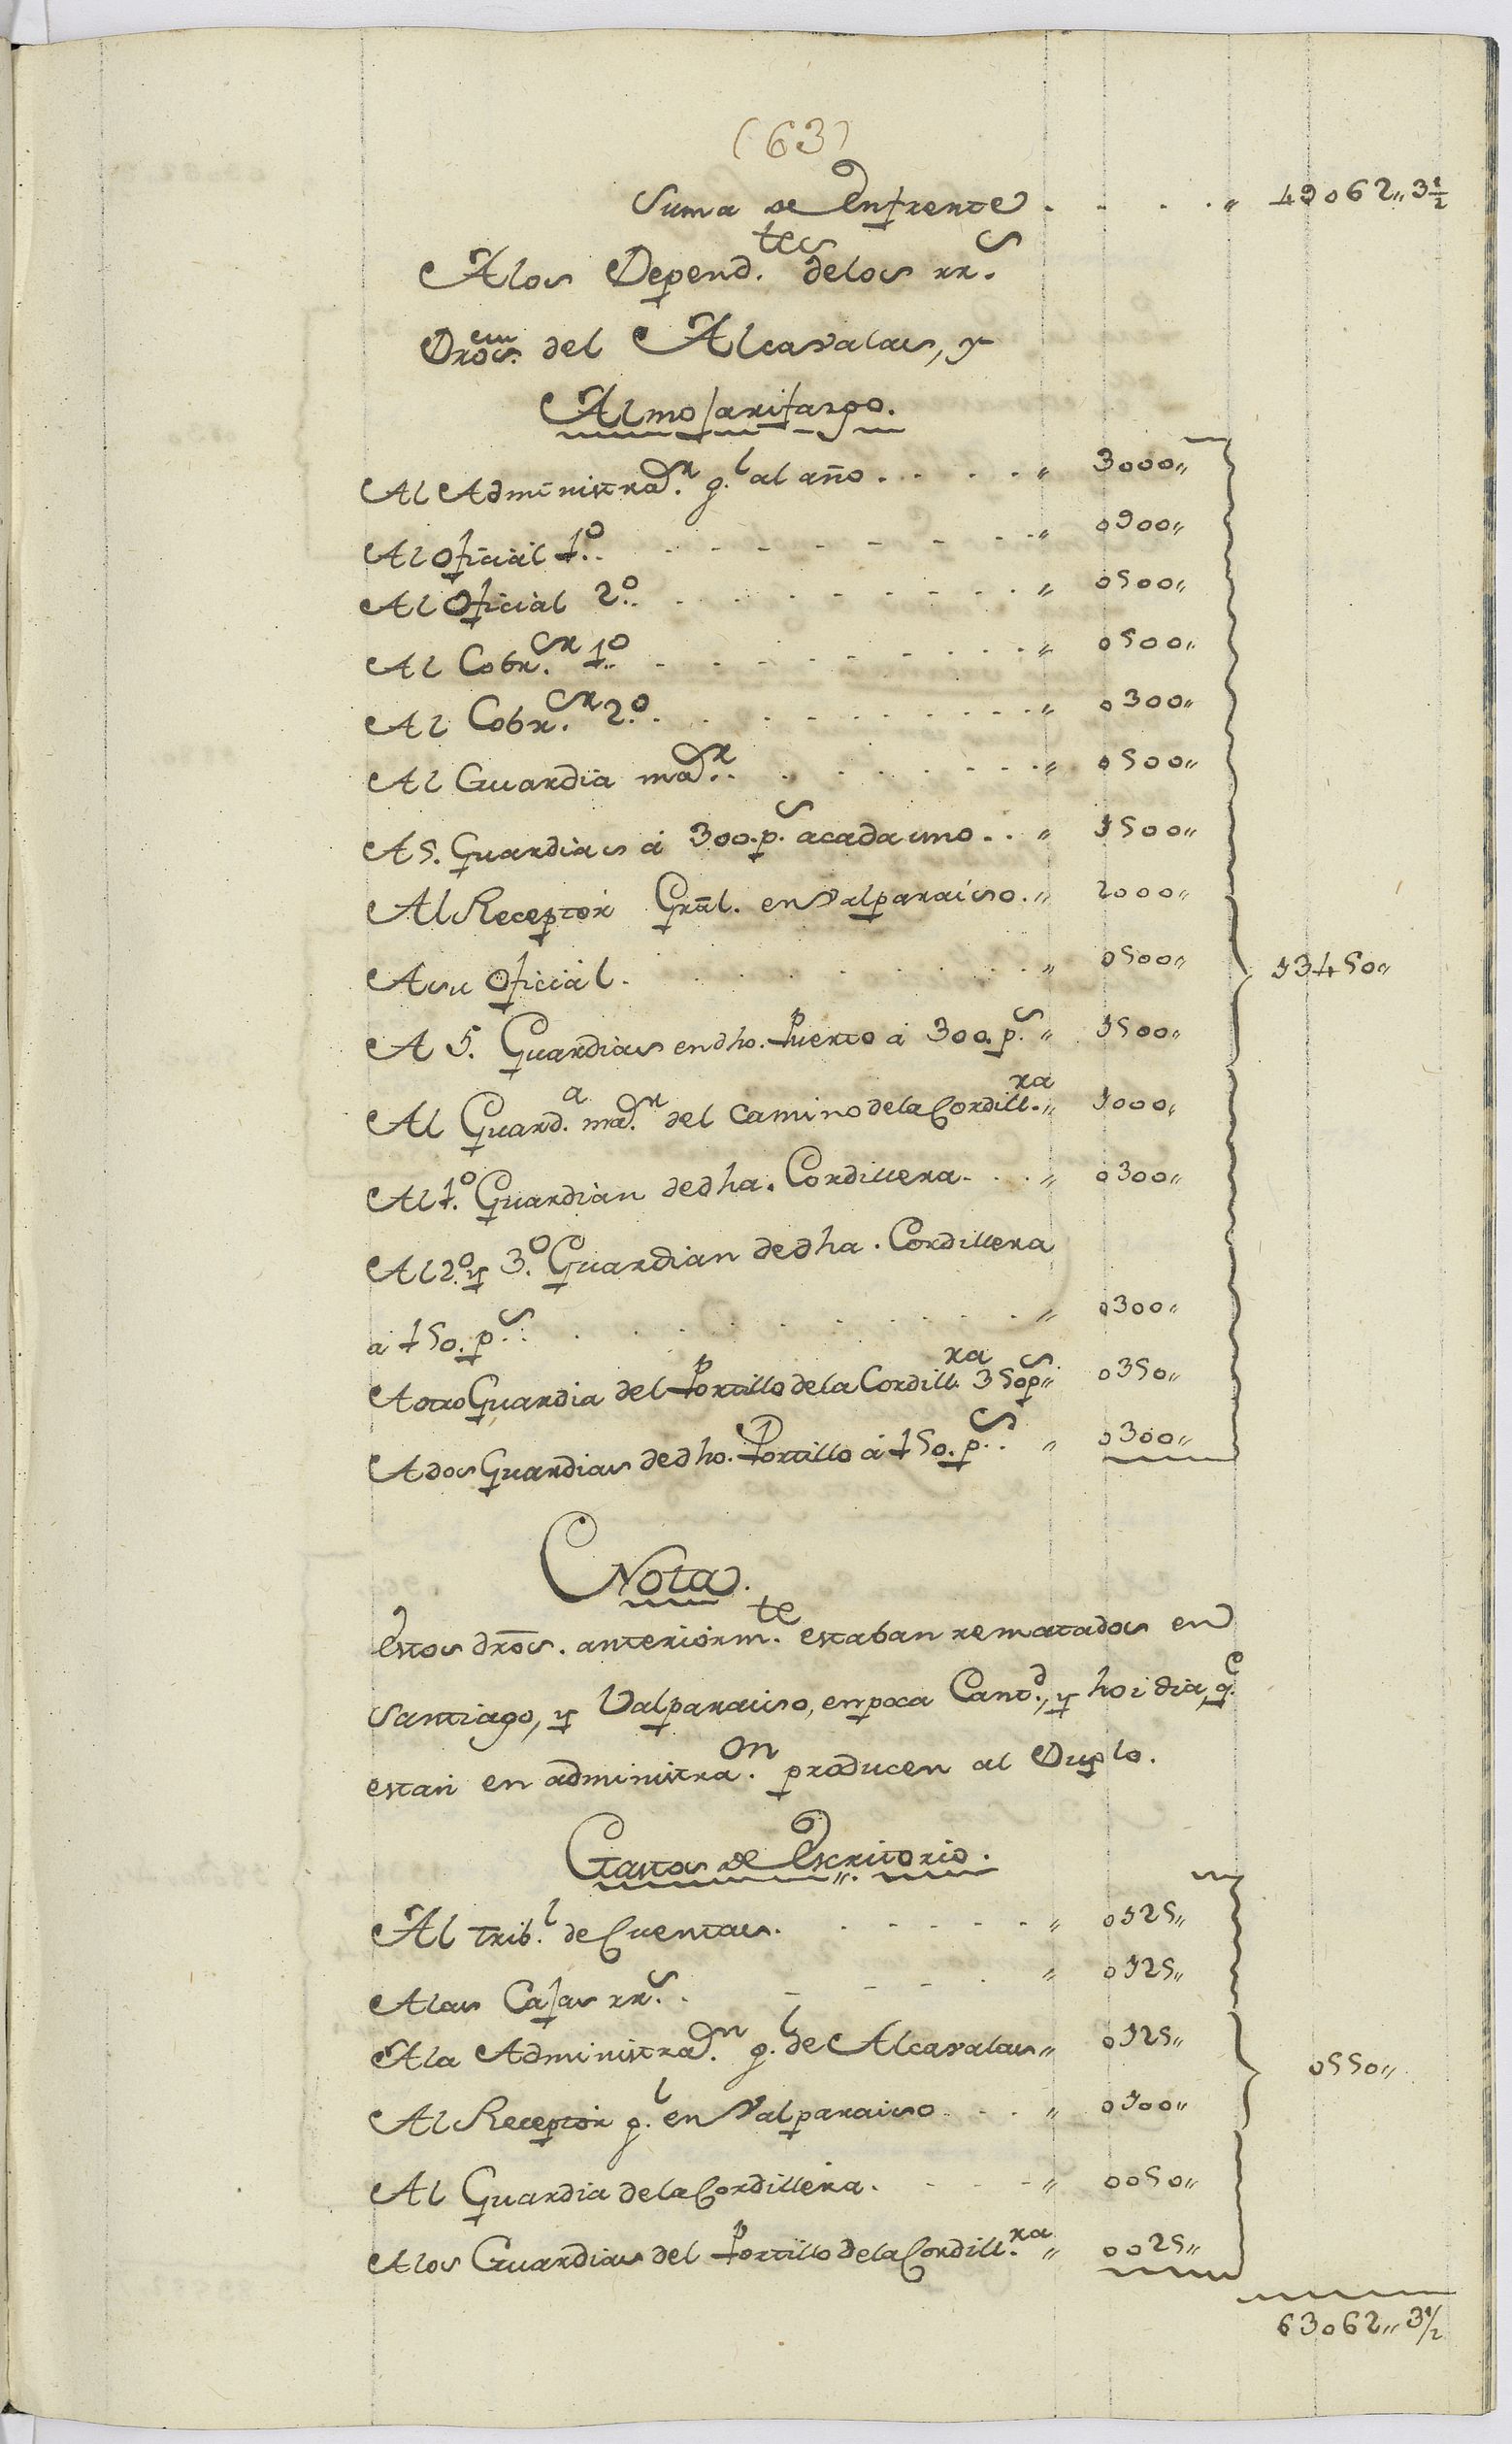 (63)
Suma de Enfrente . . . . „ 49062„3½
A los Depend.tes de los rr.s
Dros. del Alcavalas, y
Almojarifazgo.
Al Administrad.r g.l al año . . . . „ 3000„
Al Oficial 1.º . . . . . . . . „ 0900„
Al Oficial 2.º . . . . . . . . „ 0500„
Al Cobr.or 1.º . . . . . . . . „ 0500„
Al Cobr.or 2.º . . . . . . . . „ 0300„
Al Guardia mad.r . . . . . . . „ 0500„
A 5. Guardias á 300.p.s acada uno . . „ 1500„
Al Receptor Grãl. en Valparaiso . „ 2000„
Asu Oficial . . . . . . . . „ 0500„ 13450„
A 5. Guardias en dho. Puerto á 300.p.s „ 1500„
Al Guard.a mad.r del camino dela Cordill.ra „ 1000„
Al 1.º Guardian dedha. Cordillera . . . „ 0300„
Al 2.º y 3.º Guardian dedha. Cordillera
á 150.p.s . . . . . . . . „ 0300„
A otro Guardia del Portillo dela Cordill.ra 350p.s „ 0350„
A dos Guardias dedho. Portillo á 150.p.s . „ 0300„
Nota.
Estos drõs. anteriorm.te estaban rematados en
Santiago, y Valparaiso, enpoca Cant.d, y hoi dia, q.e
estan en administra.on producen al Duplo.
Gastos de Escritorio.
Al Trib.l de Cuentas . . . . . . „ 0125„
Alas Cajas rr.s . . . . . „ 0125„
Ala Administrad.n g.l de Alcavalas „ 0125„ 0550„
Al Receptor g.l en Valparaiso . . . „ 0100„
Al Guardia dela Cordillera . . . . „ 0050„
Alos Guardias del Portillo dela Cordill.ra „ 0025„
63062„3½